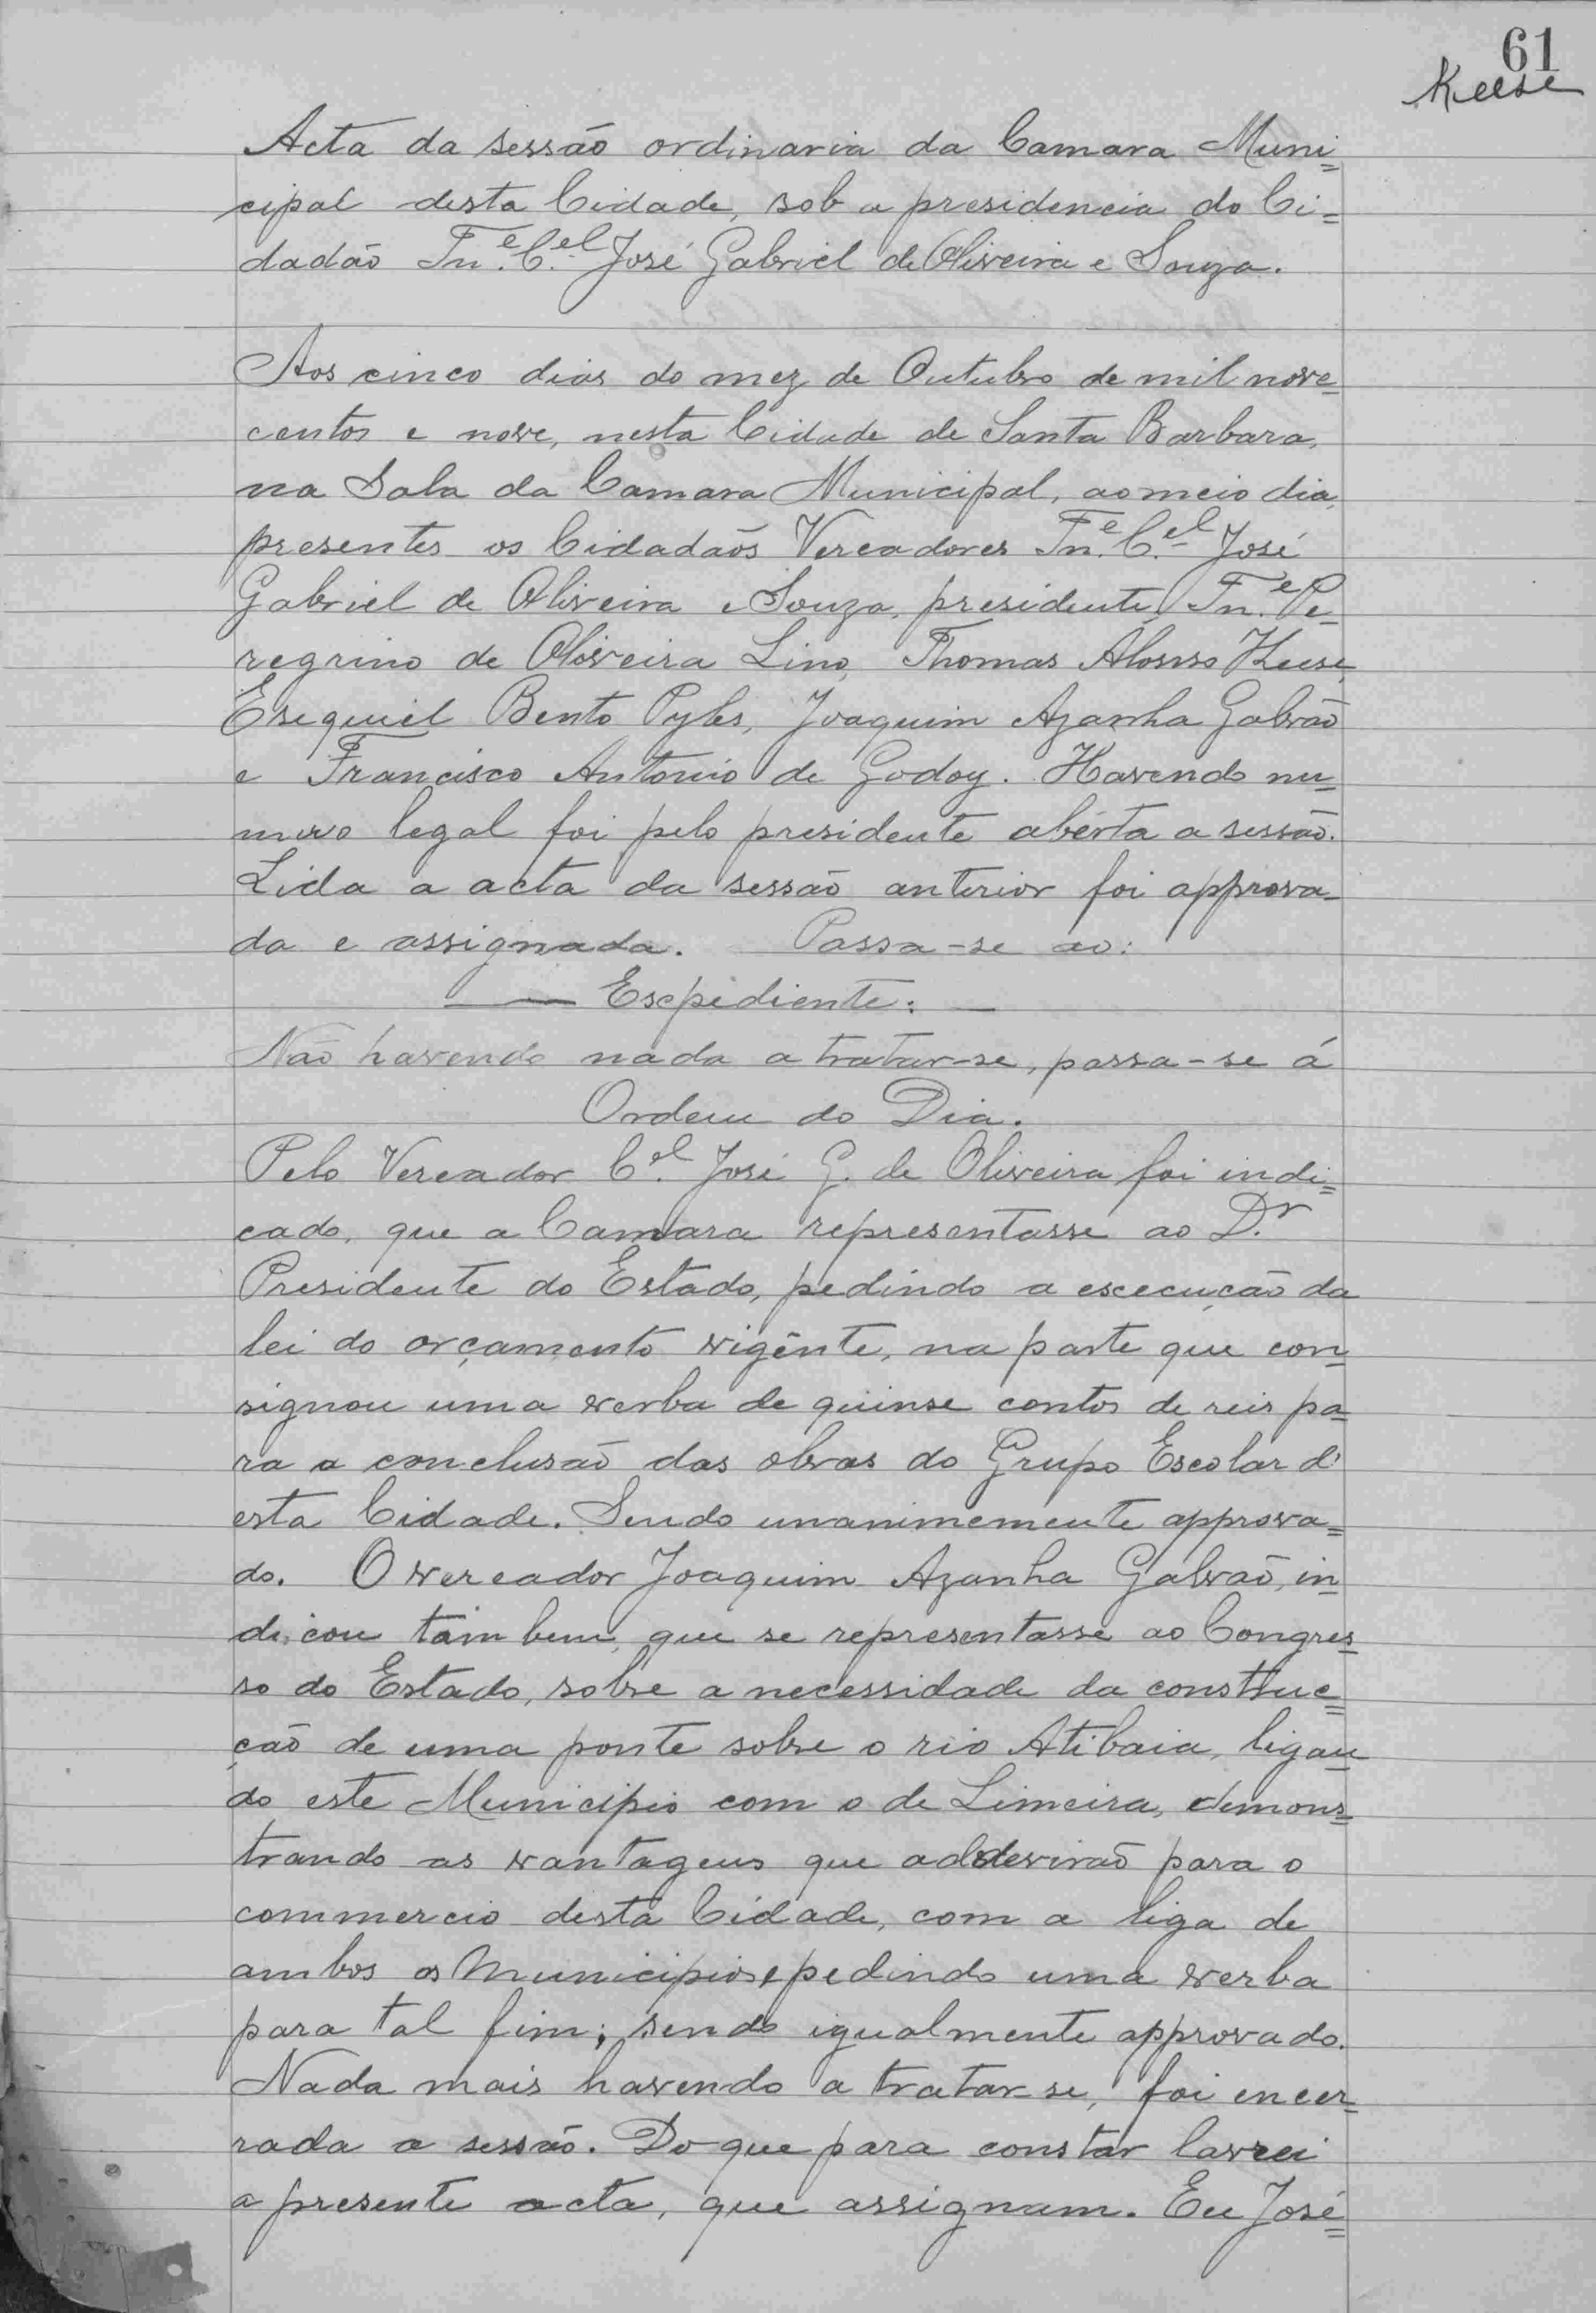 61
Keese
Acta da sessão ordinaria da Camara Muni=
cipal desta Cidade, sob a presidencia do Ci=
dadão Tn.e C.el José Gabriel de Oliveira e Souza.
Aos cinco dias do mez de Outubro de mil nove-
centos e nove, nesta Cidade de Santa Barbara,
na Sala da Camara Municipal, ao meio dia,
presentes os Cidadãos Vereadores Tn.e C.el José
Gabriel de Oliveira e Souza, presidente, Tn.e Pe-
regrino de Oliveira Lino, Thomas Alonso Keese,
Esequiel Bento Pyles, Joaquim Azanha Galvão
e Francisco Antonio de Godoy. Havendo nu-
mero legal foi pelo presidente aberta a sessão.
Lida a acta da sessão anterior foi approva-
da e assignada. Passa-se ao:
— Escpediente: —
Não havendo nada a tratar-se, passa-se á
Ordem do Dia.
Pelo Vereador C.el José G. de Oliveira foi indi=
cado, que a Camara representasse ao D.r
Presidente do Estado, pedindo a escecução da
lei do orçamento vigênte, na parte que con-
signou uma verba de quinse contos de reis pa-
ra a conclusão das obras do Grupo Escolar d'
esta Cidade. Sendo unanimemente approva=
do. O vereador Joaquim Azanha Galvão, in-
dicou tambem, que se representasse ao Congres-
so do Estado, sobre a necessidade da construc=
ção de uma ponte sobre o rio Atibaia, ligan-
do este Municipio com o de Limeira, demons=
trando as vantagens que addevirão para o
commercio desta Cidade, com a liga de
ambos os Municipios e pedindo uma verba
para tal fim; sendo igualmente approvado.
Nada mais havendo a tratar-se, foi encer-
rada a sessão. Do que para constar lavrei
a presente acta, que assignam. Eu José=